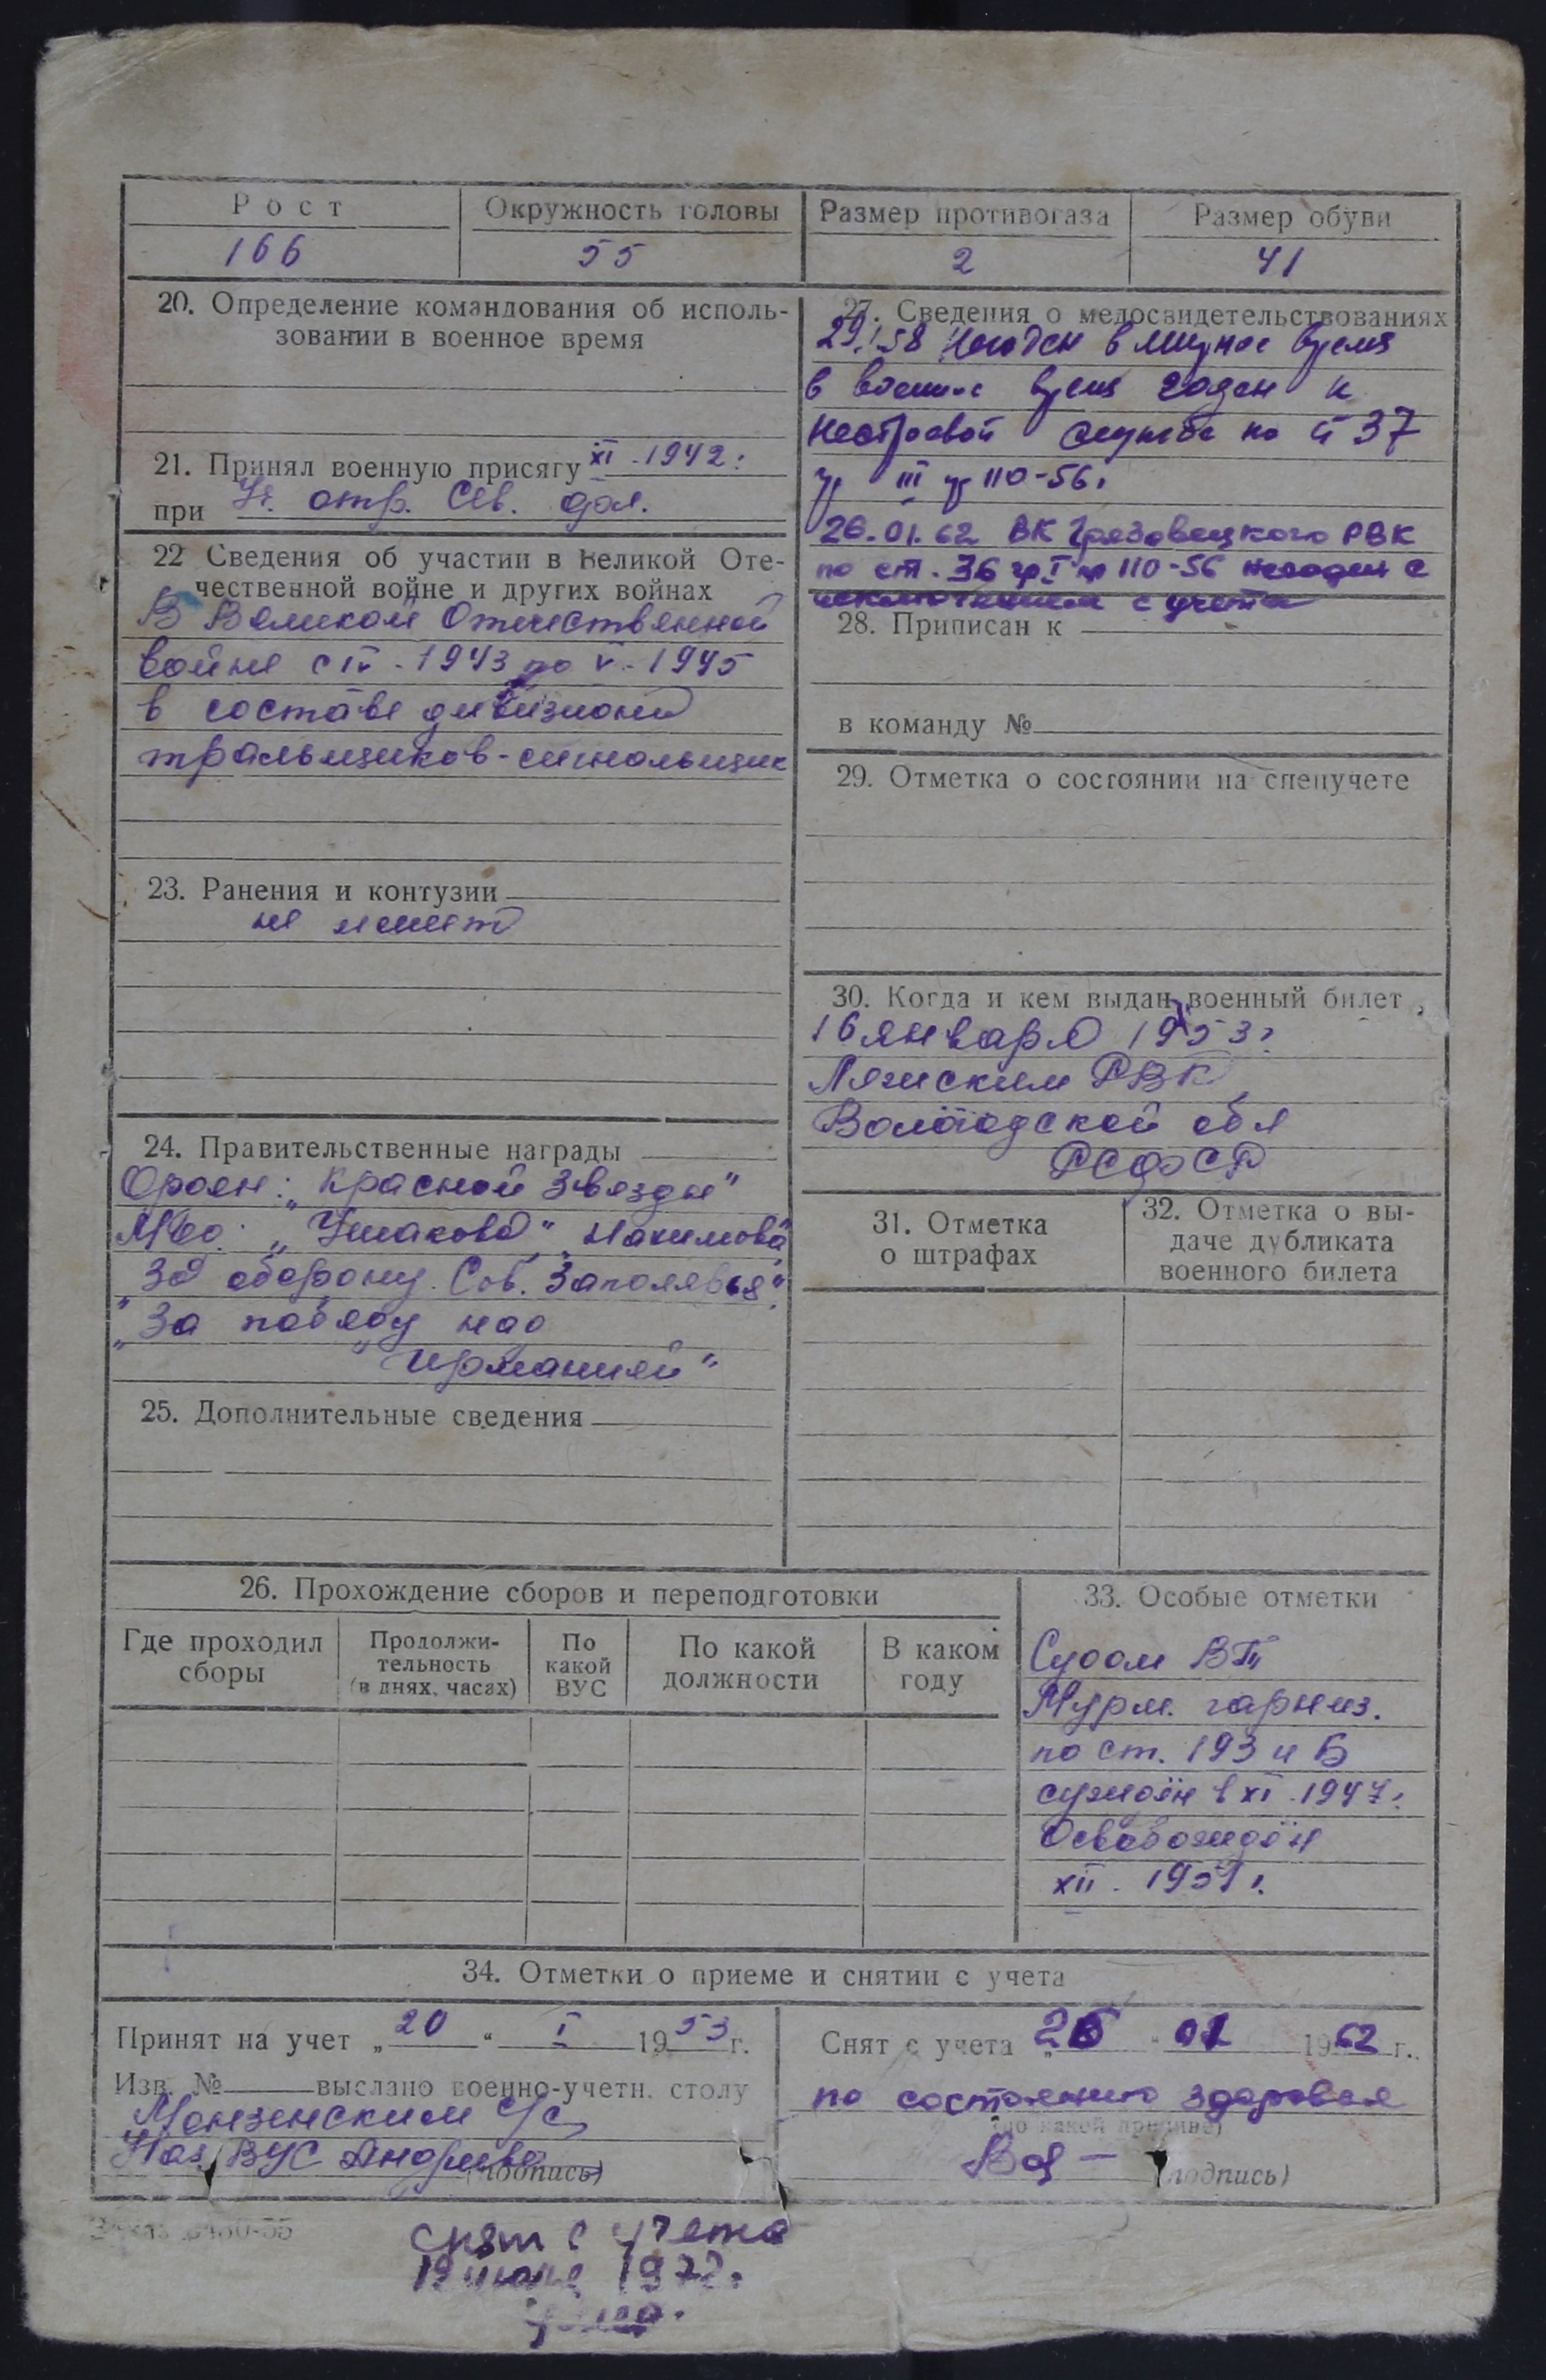 Рост
Окружность головы
Размер противогаза
Размер обуви
166
55
2
41
20. Определение командования об исполь-
зовании в военное время
21. Принял военную присягу XI - 1942 г.
при Уч. отр. Сев. фл.
22 Сведения об участии в Великой Оте-
чественной войне и других войнах
В Великой Отечественной
войне с IV - 1943 по V - 1945
в составе дивизиона
тральщиков - сигнальщик
23. Ранения и контузии
не имеет
24. Правительственные награды
Орден: „Красной Звезды"
Мед. „Ушакова" „Нахимова"
„За оборону Сов. Заполярья"
„За победу над
Германией"
25. Дополнительные сведения
27. Сведения о медосвидетельствованиях
29.I 58 Негоден в мирное время
в военное время годен к
нестроевой службе по ст 37
гр III пр 110-56г
26.01.62 ВК Грязовецкого РВК
по ст. 36 гр I пр 110-56 негоден с
исключением с учета
28. Приписан к
в команду №
29. Отметка о состоянии на спецучете
30. Когда и кем выдан военный билет
16 января 1953 г.
Лежским РВК
Вологодской обл
РСФСР
31. Отметка
о штрафах
32. Отметка о вы-
даче дубликата
военного билета
26. Прохождение сборов и переподготовки
Где проходил
сборы
Продолжи-
тельность
(в днях, часах)
По
какой
ВУС
По какой
должности
В каком
году
33. Особые отметки
Судом ВТ
Мурм. гарниз.
по ст. 193 п Б
суждён в XI - 1947 г.
Освобождён
XII - 1951 г.
34. Отметки о приеме и снятии с учета
Принят на учет „20" I 1953 г.
Изв. № выслано военно-учетн. столу
Монзенским с/с
Нач. ВУС Андреева
(подпись)
Снят с учета „26" 01 1962 г.
по состоянию здоровья
(по какой причине)
(подпись)
снят с учета
19 июля 1972 г.